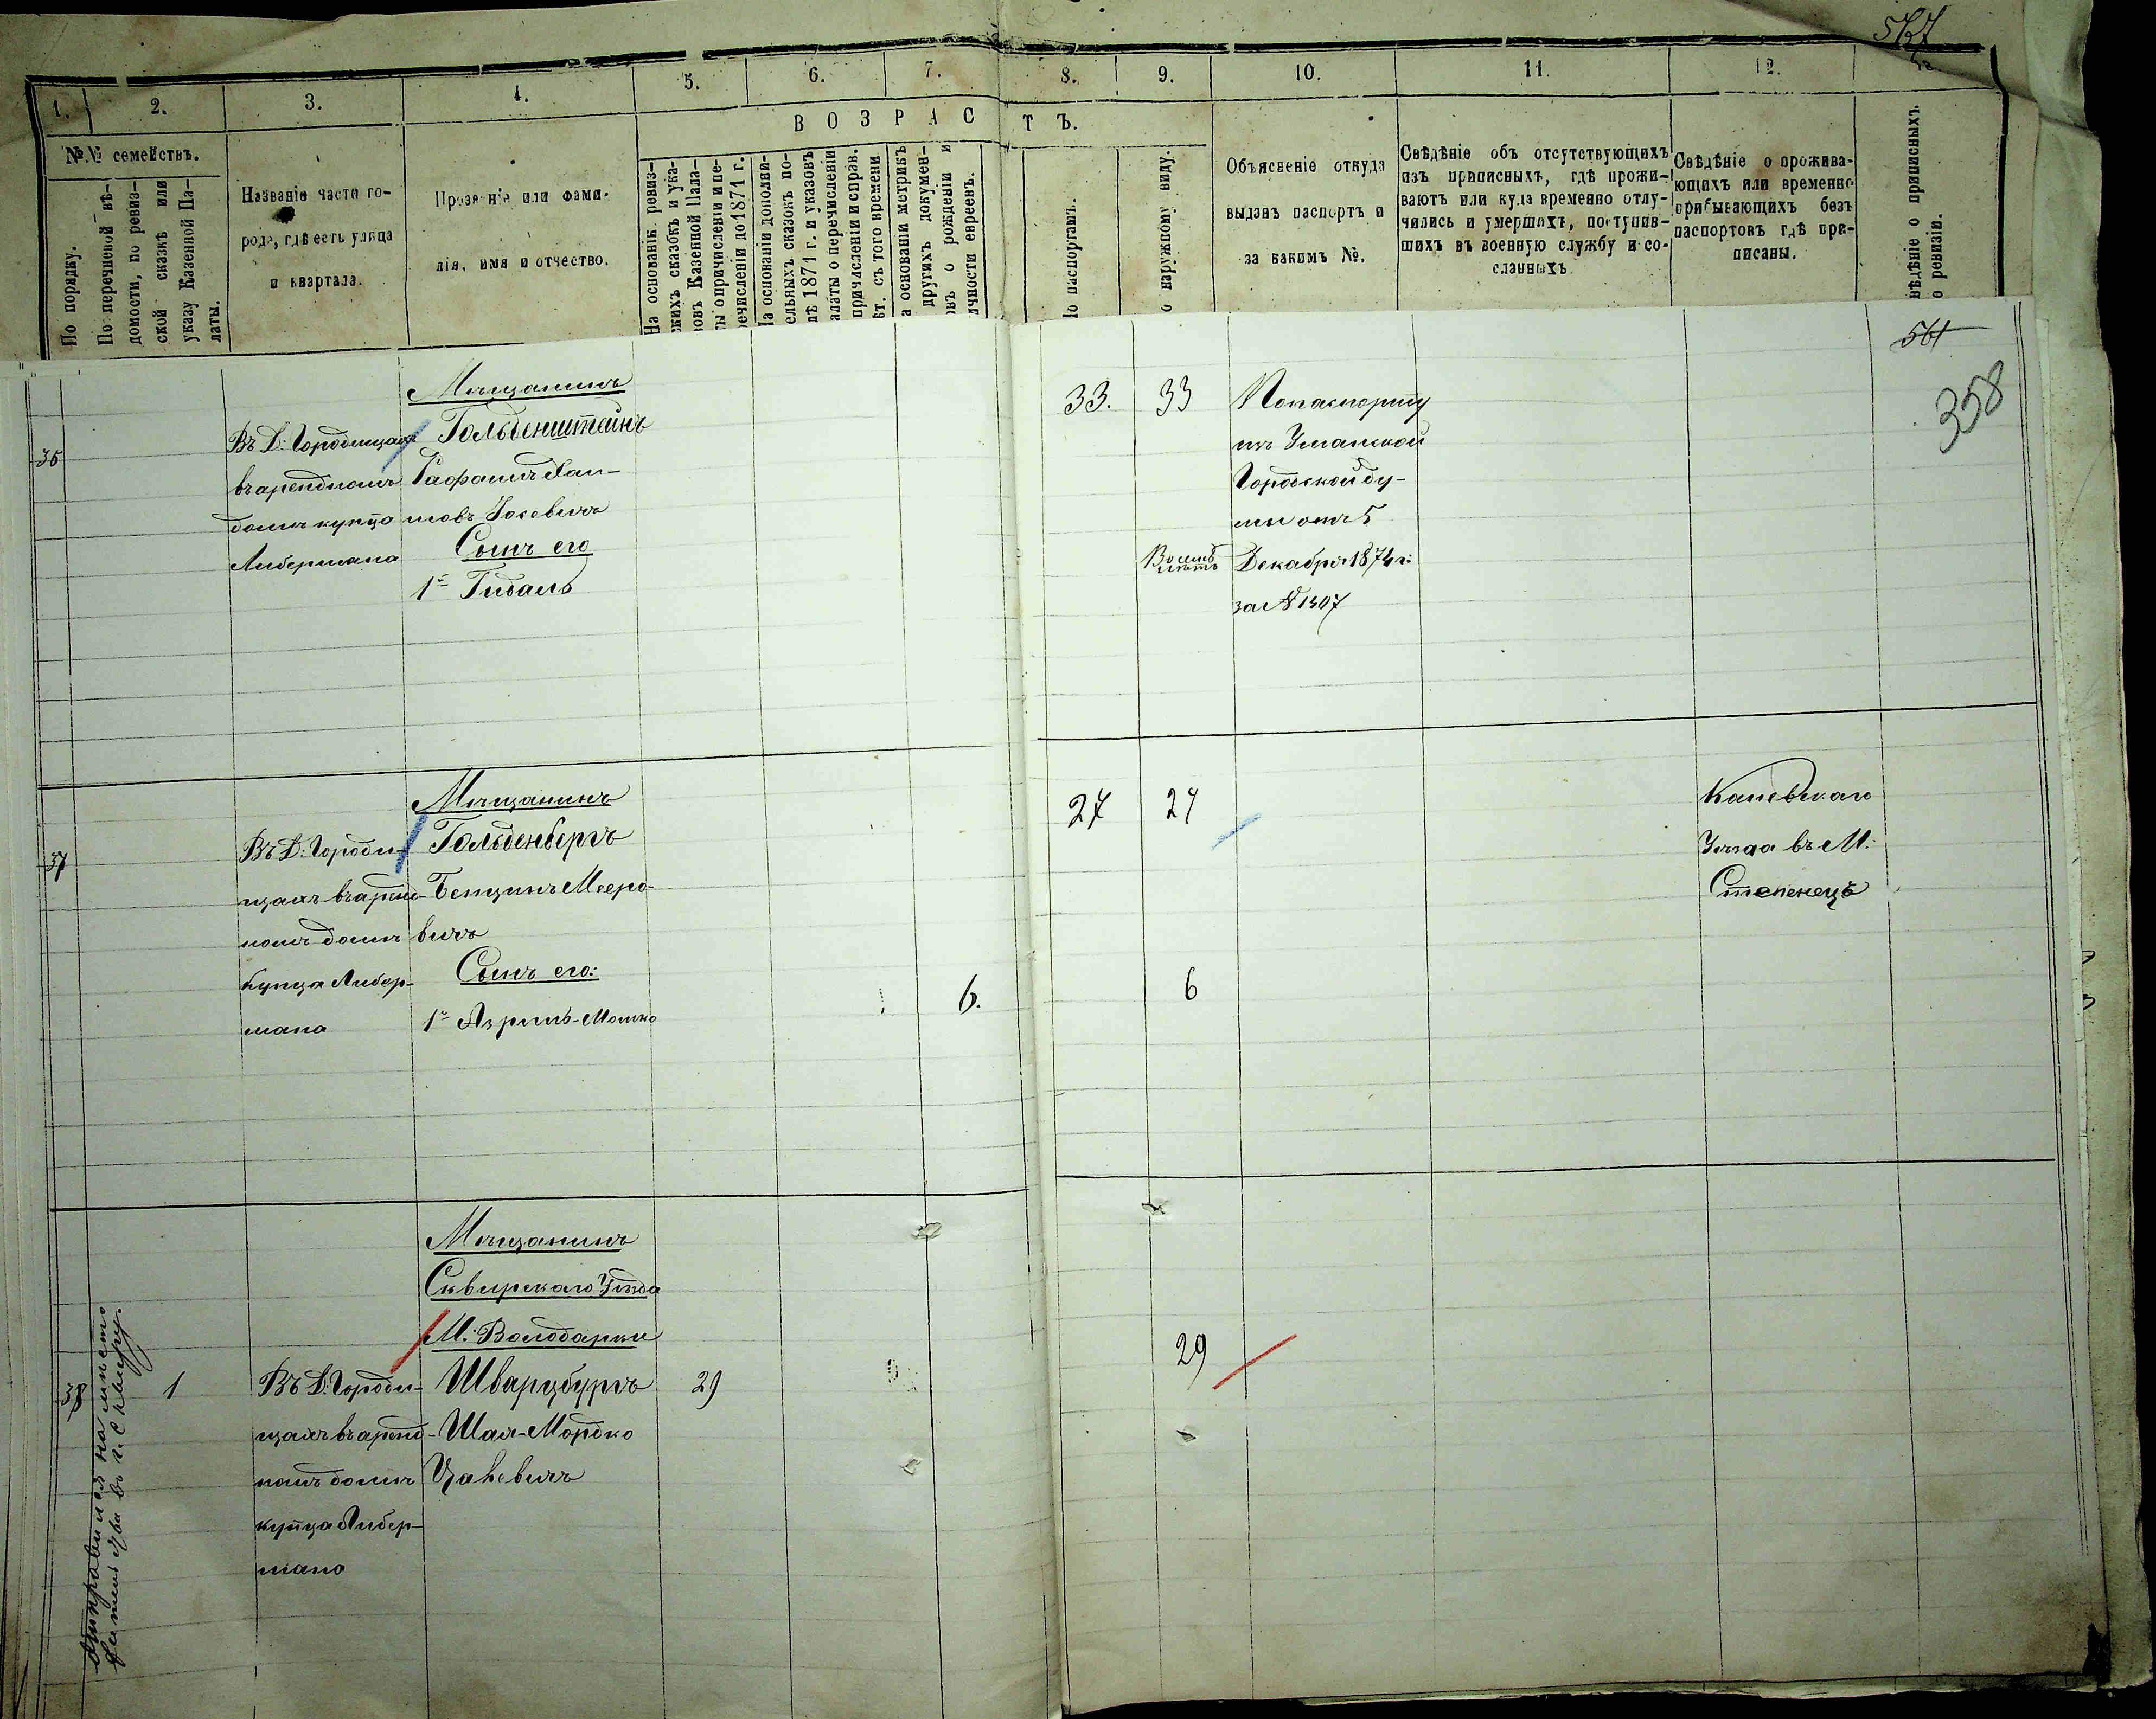 527
1.
2.
3.
4.
5.
6.
7.
8.
9.
10.
11.
12.
ВОЗРАСТЪ.
№№ семействъ.
По порядку.
По перечневой вѣ-
домости, по ревиз-
ской сказкѣ или
указу Казенной Па-
латы.
Названіе части го-
рода, гдѣ есть улица
и квартала.
Прозваніе или фами-
лія, имя и отчество.
На основаніи ревиз-
скихъ сказокъ и ука-
зовъ Казенной Пала-
ты о причисленіи и пе-
речисленіи до 1871 г.
На основаніи дополни-
тельныхъ сказокъ по-
слѣ 1871 г. и указовъ
палаты о перечисленіи
причисленіи и справ.
лѣт. съ того времени
На основаніи метрикъ
другихъ докумен-
овъ о рожденіи и
личности евреевъ.
По паспортамъ.
По наружному виду.
Объясненіе откуда
выданъ паспортъ и
за какимъ №.
Свѣдѣніе объ отсутствующихъ
изъ приписныхъ, гдѣ прожи-
ваютъ или куда временно отлу-
чились и умершихъ, поступив-
шихъ въ военную службу и со-
сланныхъ.
Свѣдѣніе о прожива-
ющихъ или временно
прибывающихъ безъ
паспортовъ гдѣ при-
писаны.
Свѣдѣніе о приписныхъ
по ревизіи.
561
358
Мѣщанинъ
36
Въ Д: Городищахъ
въ арендномъ
домѣ купца
Либермана
Гольденштейнъ
Іосевичъ
Сынъ его
1й Гидаль
33.
33
Восемь
лѣтъ
По паспорту
изъ Уманской
Городской Ду-
мы отъ 5
Декабря 1874 г:
за № 1307
Мѣщанинъ
37
Въ Д: Городи-
щахъ въ аренд-
номъ домѣ
купца Либер-
мана
Гольденбергъ
Бенцинъ Мееро-
вичъ
Сынъ его:
1й Азриль-Мошко
6.
27
27
6
Каневскаго
Уѣзда въ М.
Степенецъ
Мѣщанинъ
Сквирскаго Уѣзда
М. Володарки
38
1
Въ Д: Городи-
щахъ въ аренд-
номъ домѣ
купца Либер-
мана
Шварцбургъ
Шая-Мордко
29
29
отправился на мѣсто
въ г. Сквиру.